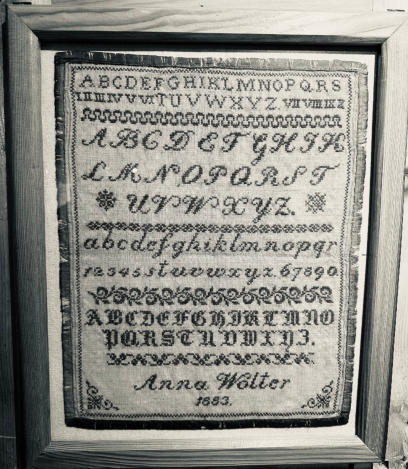 ABCDEFGHIKLMNOPQRS
I II III IV V VI TUVWXYZ VII VIII IX X
ABCDEFGHIK
LMNOPQRST
UVWXYZ.
abcdefghiklmnopqr
12345stuvwxyz.67890
ABCDEFGHIKLMNO
PQRSTUVWXYZ.
Anna Wolter
1883.